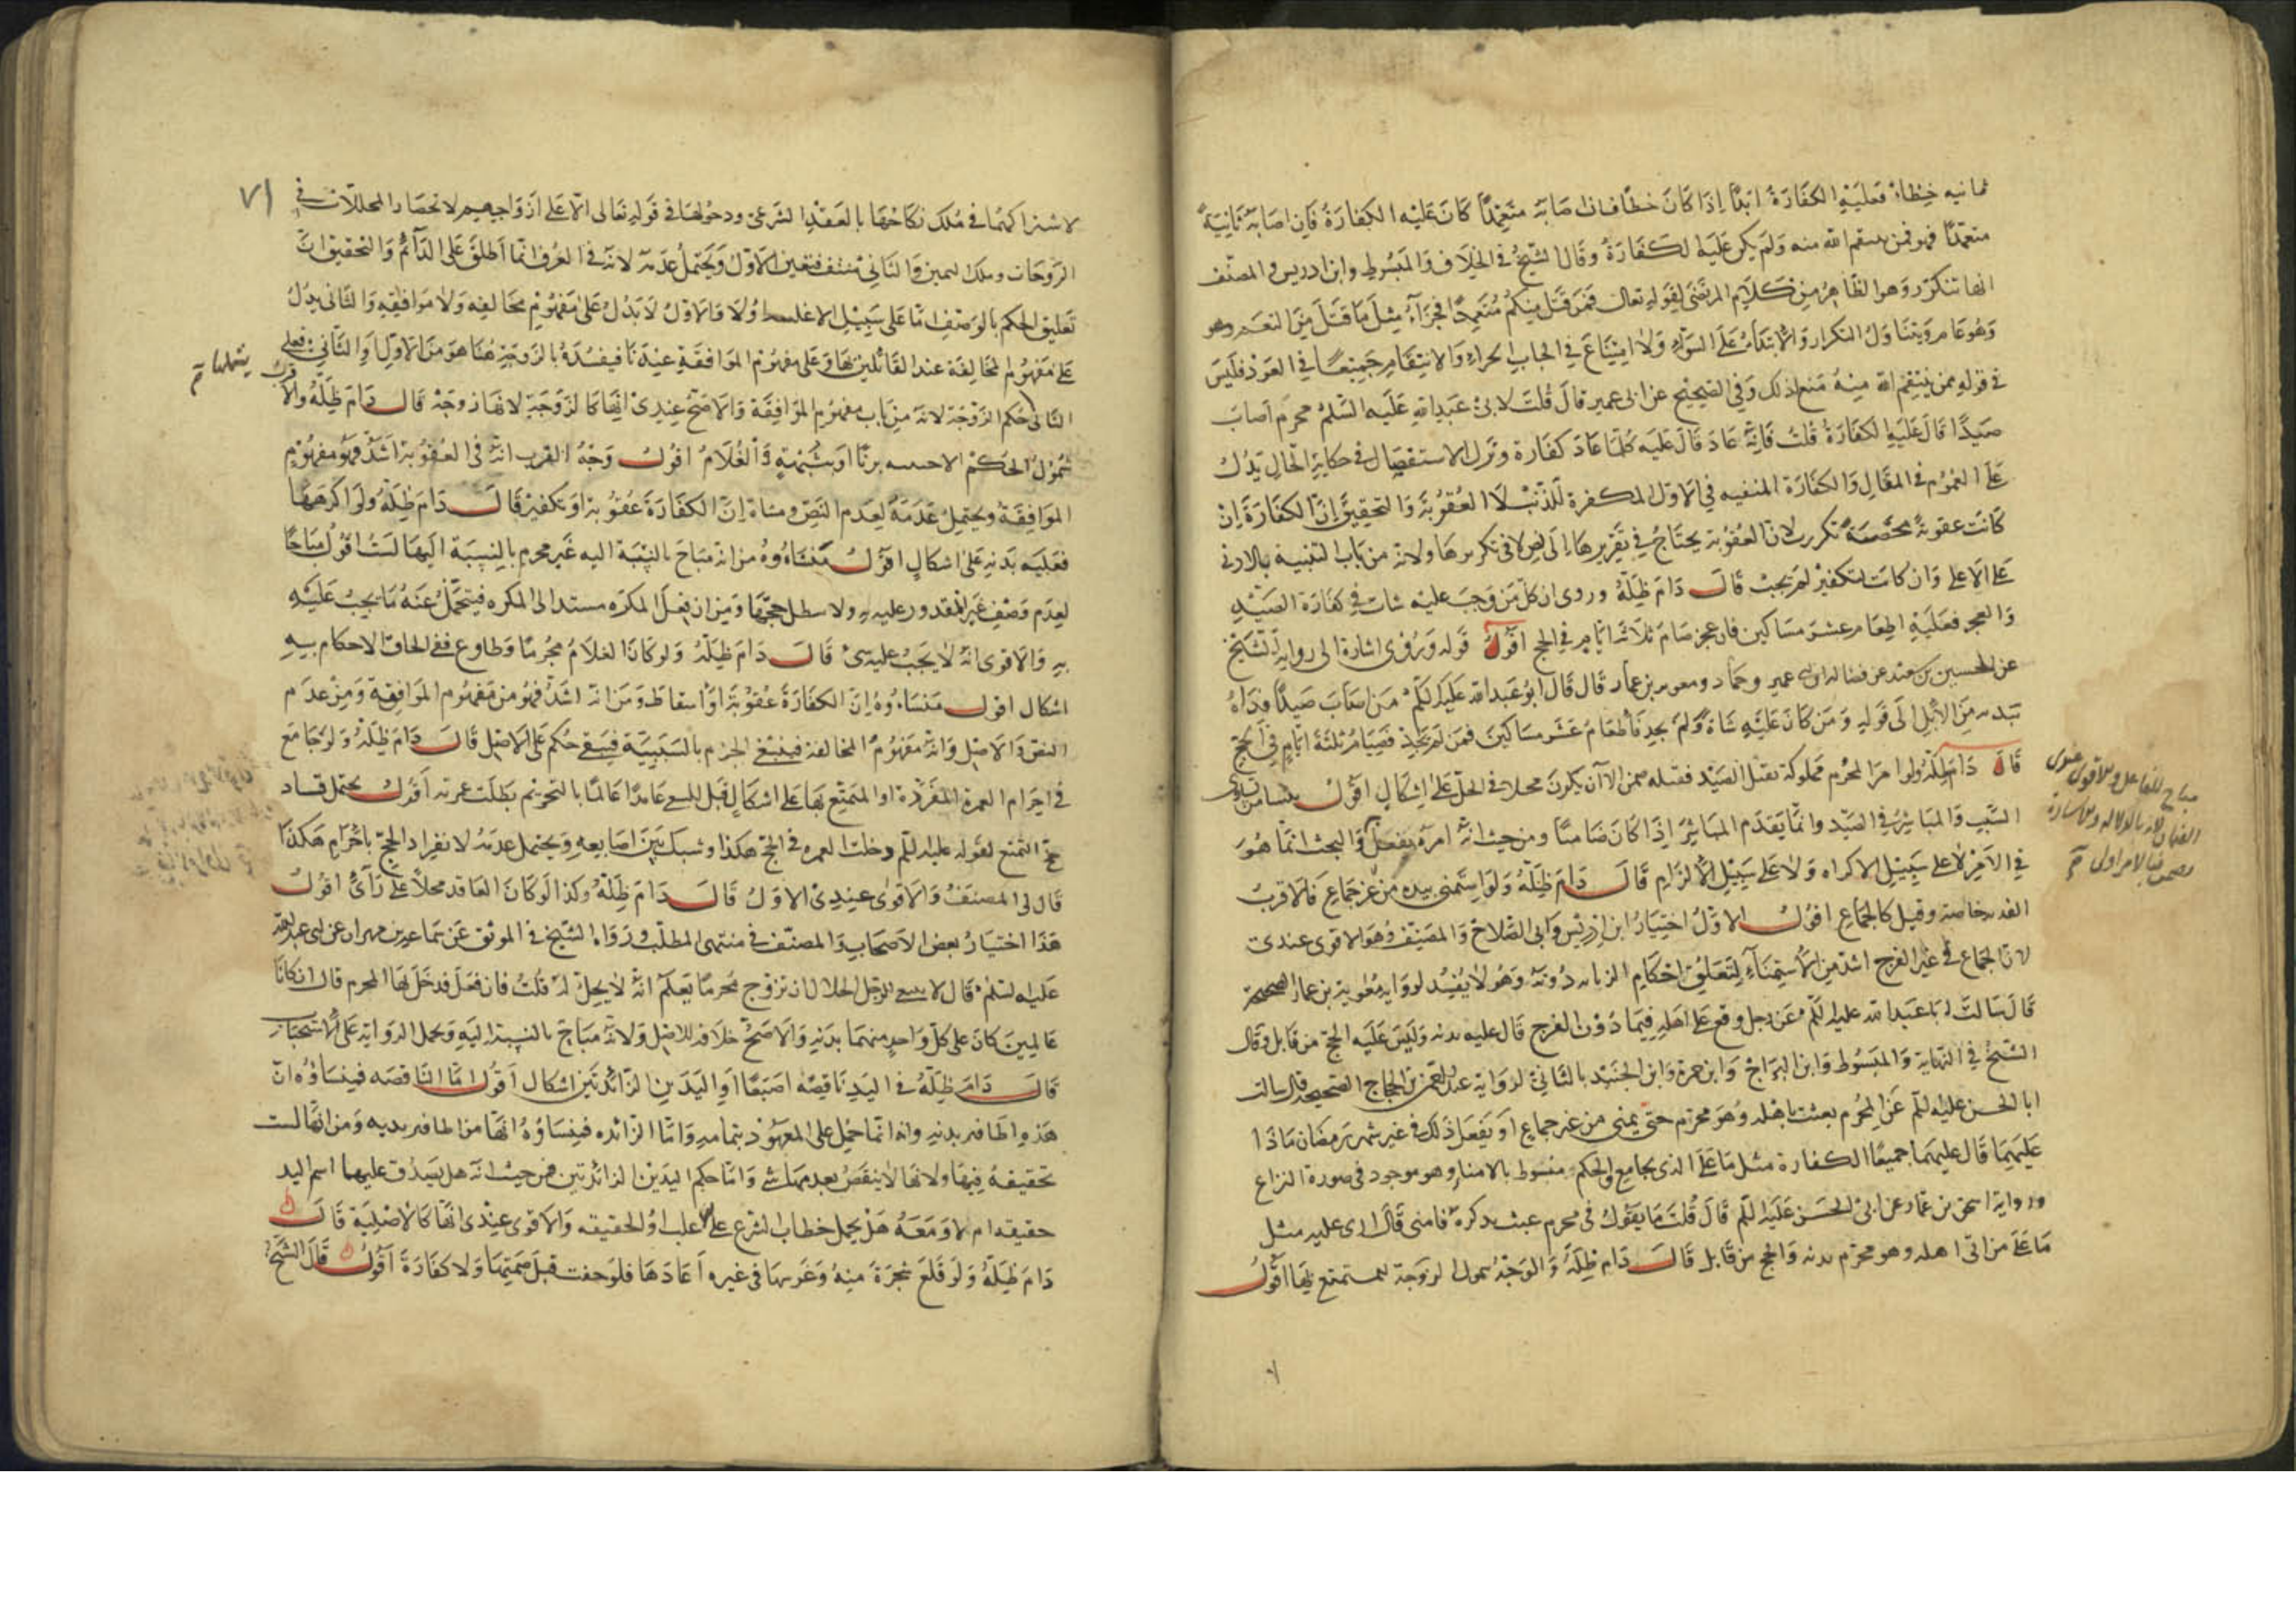 ثانيه خطاء فعليه الكفارة ابدا اذا كان خطا فان اصابه متعمدا كان عليه الكفارة فان اصابه ثانية
متعمدا فهو ممن ينتقم الله منه ولم يكن عليه الكفارة وقال الشيخ في الخلاف والمبسوط وابن ادريس والمصنف
انها تتكرر وهو الظاهر من كلام المرتضى لقوله تعالى فمن قتل منكم متعمدا فجزاء مثل ما قتل من النعم
وهو عام ويتناول التكرار والابتداء على السواء ولا امتناع في ايجاب الجزاء والانتقام جميعا في العود فليس
في قوله ممن ينتقم الله منه منع ذلك وفي الصحيح عن ابن عمير قال قلت لابي عبد الله عليه السلم محرم اصاب
صيدا قال عليه الكفارة قلت فانه عاد قال عليه كلما عاد كفارة وترك الاستفصال في حكاية الحال يدل
على العموم في المقال والكفارة المنفيه في الاول المكفرة للذنب لا العقوبة والتحقيق ان الكفارة ان
كانت عقوبة محضة تكررت لان العقوبة يحتاج في تقريرها الى نص لا في تكريرها ولانه من باب التنبيه بالادنى
على الاعلى وان كانت لتكفير لم يجب قال دام ظله وروى ان كل من وجب عليه شاة في كفارة الصيد
والعجز فعليه اطعام عشرة مساكين فان عجز صام ثلاثة ايام في الحج اقول قوله وروى اشارة الى رواية الشيخ
عن الحسين بن سعيد عن فضاله وابن ابي عمير وحماد ومعويه بن عمار قال قال ابو عبد الله عليه السلم من اصاب صيدا فداه
بدنه من الابل الى قوله ومن كان عليه شاة ولم يجد فاطعام عشر مساكين فمن لم يجد فصيام ثلثة ايام في الحج
قال دام ظله ولو امر المحرم مملوكه بقتل الصيد فقتله ضمن الا ان يكون محلا في الحل على اشكال اقول ينشا من تساوى
السبب والمباشر في الصيد وانما يقدم المباشر اذا كان ضامنا ومن حيث انه امره بفعل والبحث انما هو
في الامر لا على سبيل الاكراه ولا على سبيل الالزام قال دام ظله ولو استمنى بيده من غير جماع فالاقرب
البدنه خاصة وقيل كالجماع اقول الاول اختيار ابن ادريس وابى الصلاح والمصنف وهو الاقوى عندى
لان الجماع في غير الفرج اشد من الاستمناء لتعلق احكام الزنا به دونه وهو لا يفسد لرواية معوية بن عمار الصحيحة
قال سالت ابا عبد الله عليه السلم عن رجل وقع على اهله فيما دون الفرج قال عليه بدنه وليس عليه الحج من قابل وقال
الشيخ في النهاية والمبسوط وابن البراج وابن حمزة وابن الجنيد بالثاني لرواية عبد الرحمن بن الحجاج الصحيحة قال سالت
ابا الحسن عليه السلم عن المحرم يعبث باهله وهو محرم حتى يمنى من غير جماع او يفعل ذلك في غير شهر رمضان ماذا
عليهما قال عليهما جميعا الكفارة مثل ما على الذى يجامع والحكم منوط بالامناء وهو موجود في صورة النزاع
ورواية اسحق بن عمار عن ابى الحسن عليه السلم قال قلت ما يقول في محرم عبث بذكره فامنى قال ارى عليه مثل
ما على من اتى اهله وهو محرم بدنه والحج من قابل قال دام ظله والوجه شمول الزوجة للمستمتع بها اقول
مباح للفاعل
بالامر اولى
٧١
لاشتراكهما في ملك نكاحها بالعقد الشرعى ودخولها في قوله تعالى الا على ازواجهم لانحصار المحللات في
الزوجات وملك اليمين والثاني منتف فتعين الاول ويحتمل عدمه لانه في العرف انما اطلق على الدائم والتحقيق ان
تعليق الحكم بالوصف اما على سبيل الاغلب ولا فالاول لا يدل على مفهوم مخالفه ولا موافقه والثاني يدل
على مفهوم المخالفة عند القائلين بها وعلى مفهوم الموافقة عندنا فيفيده بالزوجة هنا هو من الاول او الثاني فعلى
يشملها
الثاني حكم الزوجة لانه من باب مفهوم الموافقة والاصح عندى انها كالزوجة لانها زوجة قال دام ظله والاقرب
شمول الحكم الاجنبيه بزنا او شبهة والغلام اقول وجه القرب انه في العقوبة اشد فهو مفهوم
الموافقة ويحتمل عدمه لعدم النص ومنشاه ان الكفارة عقوبة او تكفير قال دام ظله ولو اكرهها
فعليه بدنه على اشكال اقول منشاوه من انه مباح بالنسبة اليه غير محرم بالنسبة اليها لست اقول مباحا
لعدم وصف غير المقدور عليه به ولا يبطل حجها ومن ان فعل المكره مستند الى المكره فيتحمل عنه ما يجب عليه
به والاقوى انه لا يجب عليه شئ قال دام ظله ولو كان الغلام محرما وطاوع ففى الحاق الاحكام به
اشكال اقول منشاوه ان الكفارة عقوبة او اسقاط ومن انه اشد فهو من مفهوم الموافقة ومن عدم
النص والاصل وانه مفهوم المخالفه فينبغى الجزم بالسببية فيبقى حكم على الاصل قال دام ظله ولو جامع
في احرام العمرة المفردة او المتمتع بها على اشكال قبل السعى عامدا عالما بالتحريم بطلت عمرته اقول يحتمل فساد
حج التمتع لقوله عليه السلم دخلت العمره في الحج هكذا وشبك بين اصابعه ويحتمل عدمه لانفراد الحج باحرام هكذا
قال لى المصنف والاقوى عندى الاول قال دام ظله وكذا لو كان العاقد محلا على رأى اقول
هذا اختيار بعض الاصحاب والمصنف في منتهى المطلب ورواه الشيخ في الموثق عن سماعه بن مهران عن ابى عبد الله
عليه السلم قال لا ينبغى للرجل الحلال ان يزوج محرما يعلم انه لا يحل له قلت فان فعل فدخل بها المحرم قال ان كانا
عالمين كان على كل واحد منهما بدنه والاصح خلافه للاصل ولانه مباح بالنسبة اليه وتحمل الرواية على الاستحباب
قال دام ظله في اليد ناقصه اصبعا او اليدين الزائدتين اشكال اقول اما الناقصه فينشاؤه ان
هذه اظافير بدنه وانه انما حمل على المعهود بتمامه واما الزائده فينشاؤه انها من اظافير يديه ومن انها ليست
حقيقه فيها ولانها لا ينقص بعدمها شئ واما حكم اليدين الزائدتين فمن حيث انه هل يصدق عليهما اسم اليد
حقيقه ام لا ومعه هل يحمل خطاب الشرع على الاغلب او الحقيقه والاقوى عندى انها كالاصلية قال
دام ظله ولو قلع شجرة منه وغرسها في غيره اعادها فلو جفت قيل ضمنها ولا كفارة اقول قال الشيخ